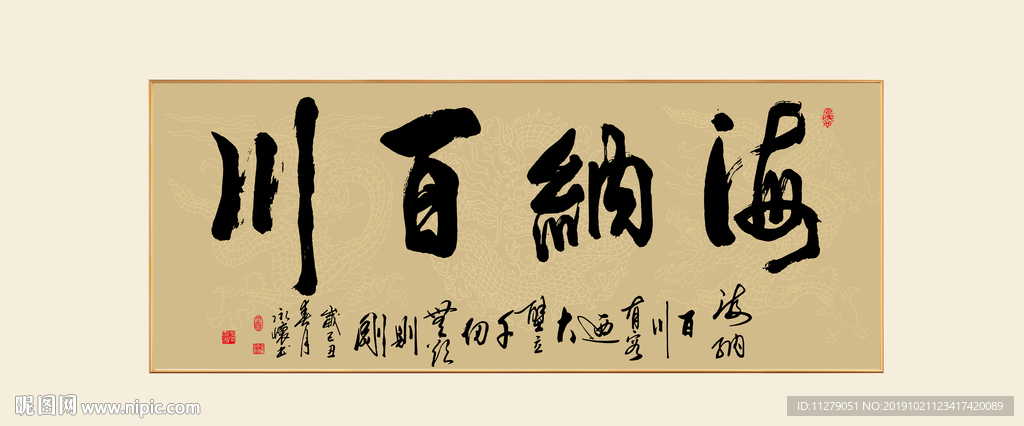 海納百川
海納百川有容迺大壁立千仞無欲則剛
歲己丑
春月
永懷书
昵图网 www.nipic.com
ID:11279051 NO:20191021123417420089